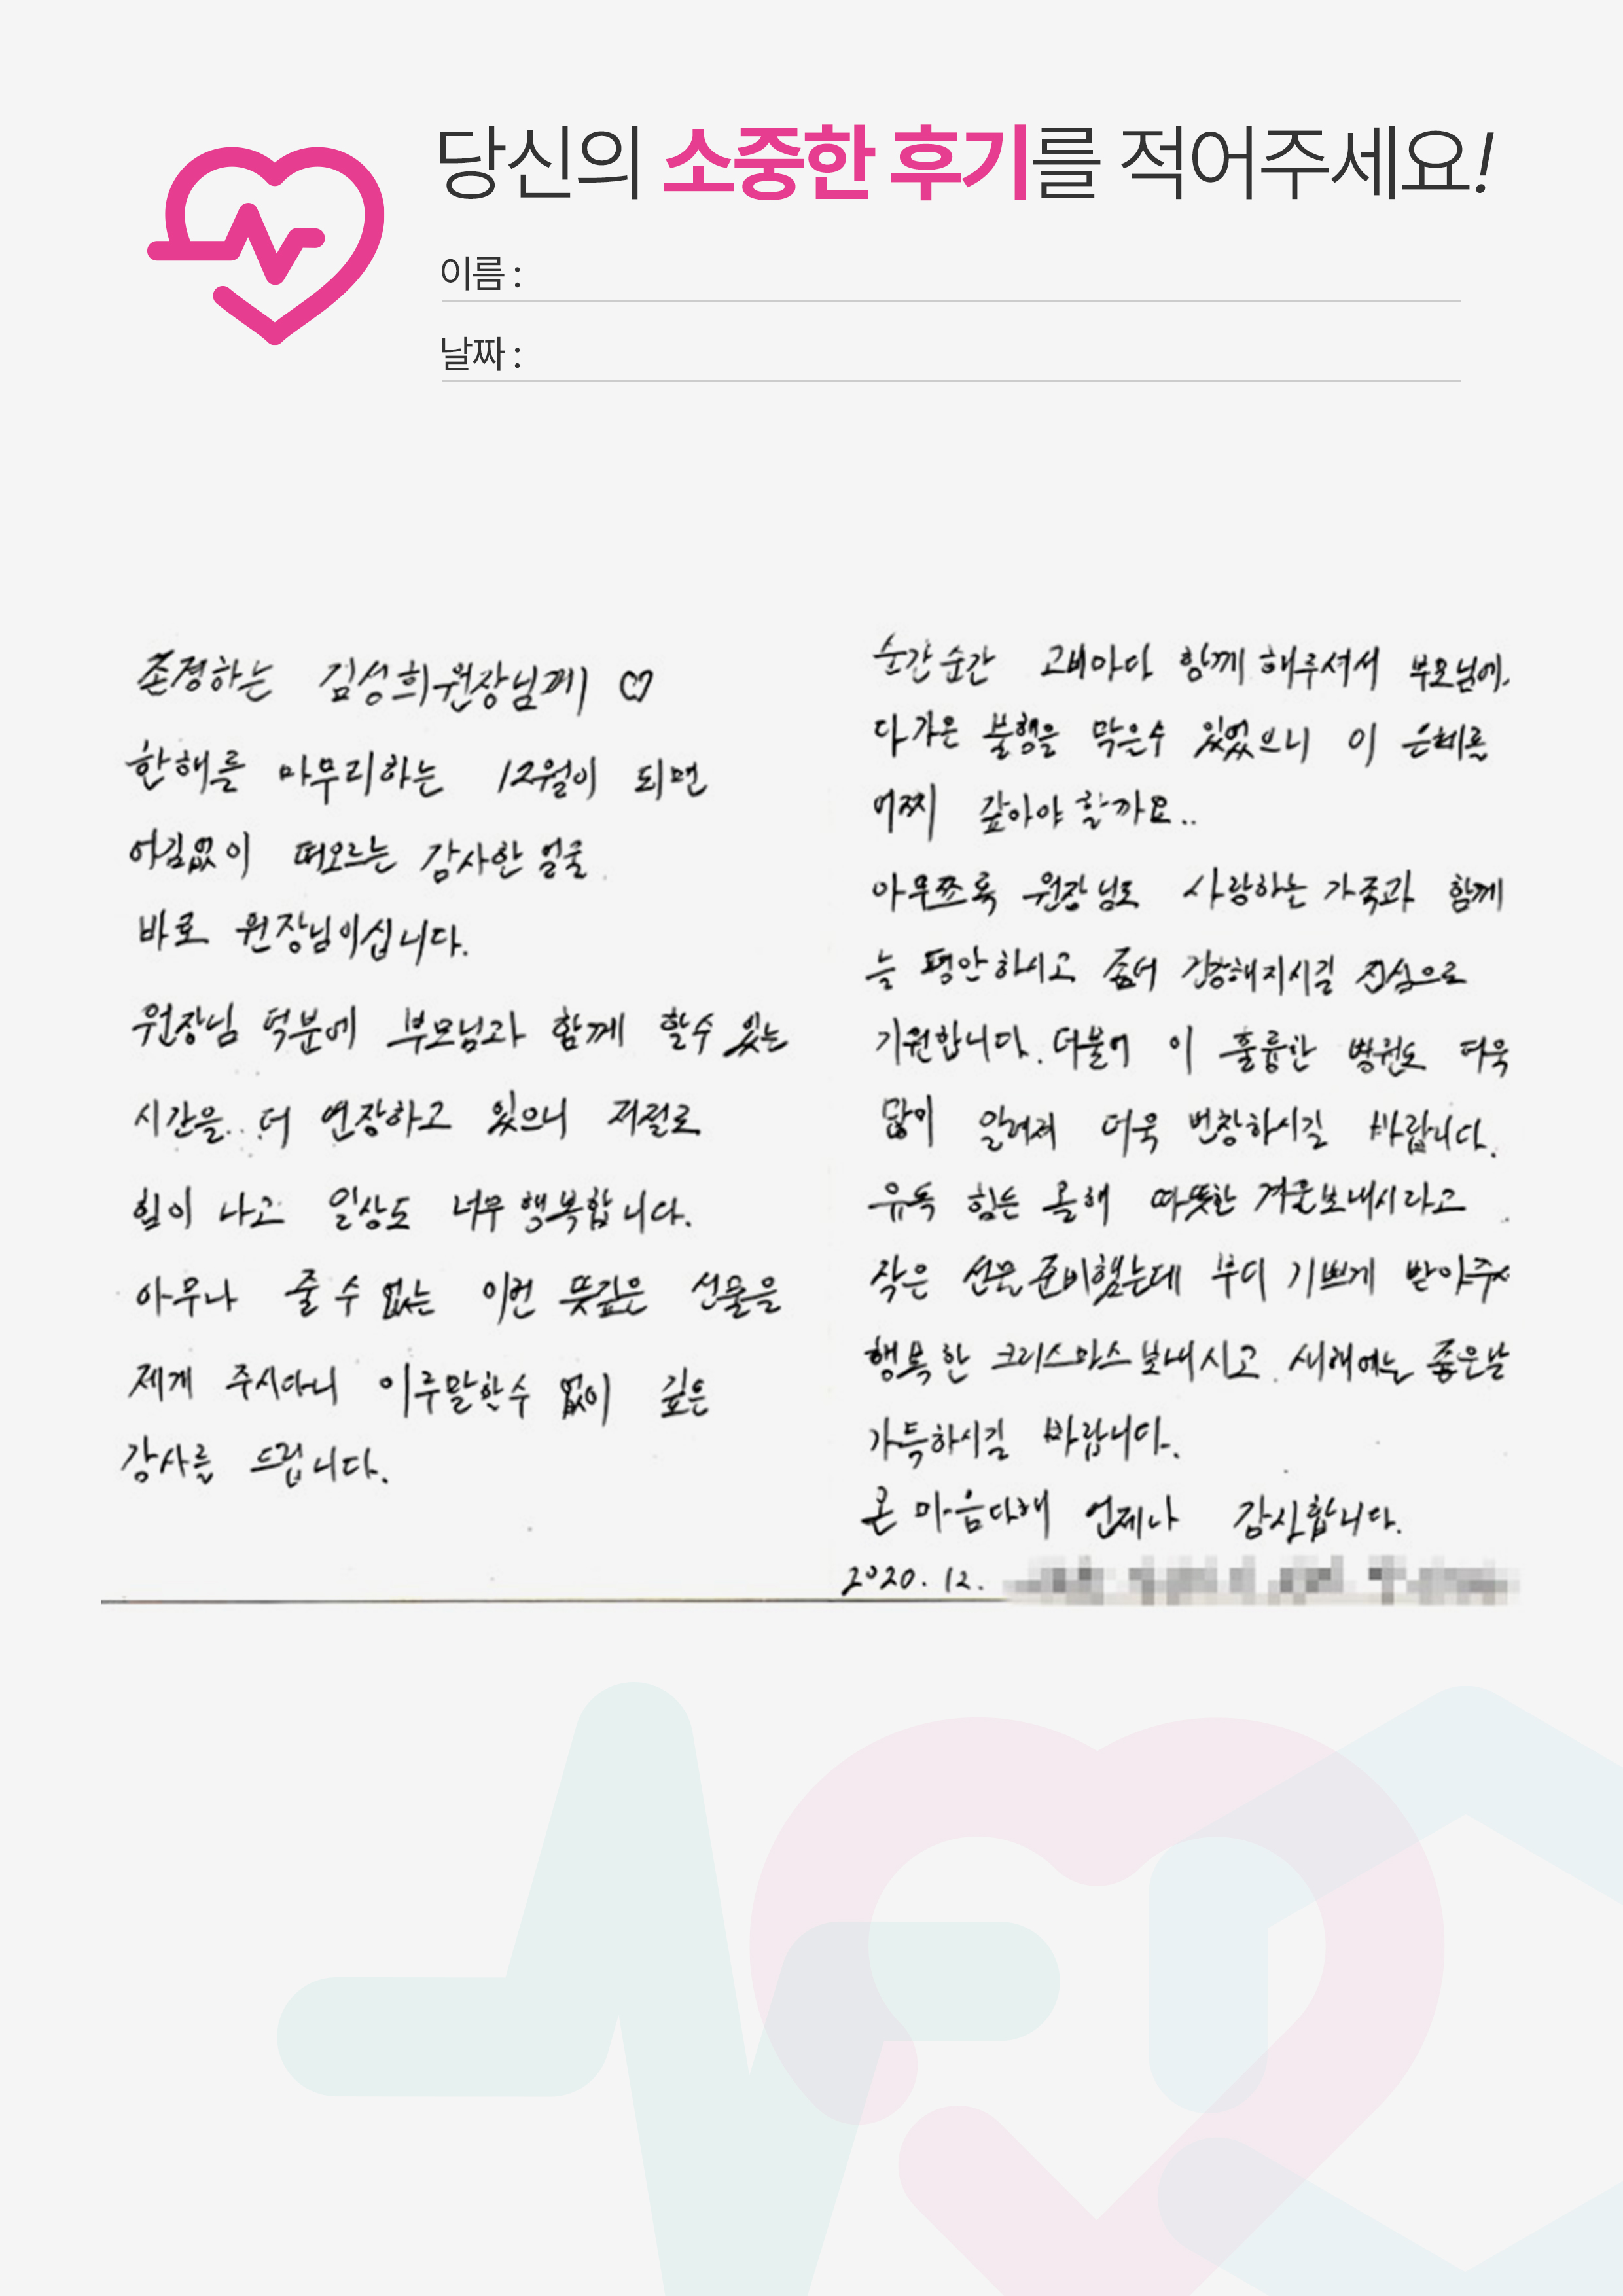 당신의 소중한 후기를 적어주세요!
이름 :
날짜 :
존경하는 김성희원장님께 ♡
한해를 마무리하는 12월이 되면
어김없이 떠오르는 감사한 얼굴
바로 원장님이십니다.
원장님 덕분에 부모님과 함께 할수 있는
시간을.. 더 연장하고 있으니 저절로
힘이 나고 일상도 너무 행복합니다.
아무나 줄 수 없는 이런 뜻깊은 선물을
제게 주시다니 이루말할수 없이 깊은
감사를 드립니다.
순간순간 고비마다 함께 해주셔서 부모님에
다가온 불행을 막을수 있었으니 이 은혜를
어찌 갚아야 할까요..
아무쪼록 원장님도 사랑하는 가족과 함께
늘 평안하시고 좀더 건강해지시길 진심으로
기원합니다. 더불어 이 훌륭한 병원도 더욱
많이 알려져 더욱 번창하시길 바랍니다.
유독 힘든 올해 따뜻한 겨울보내시라고
작은 선물 준비했는데 부디 기쁘게 받아주시
행복한 크리스마스 보내시고 새해에는 좋은날
가득하시길 바랍니다.
온 마음다해 언제나 감사합니다.
2020. 12.